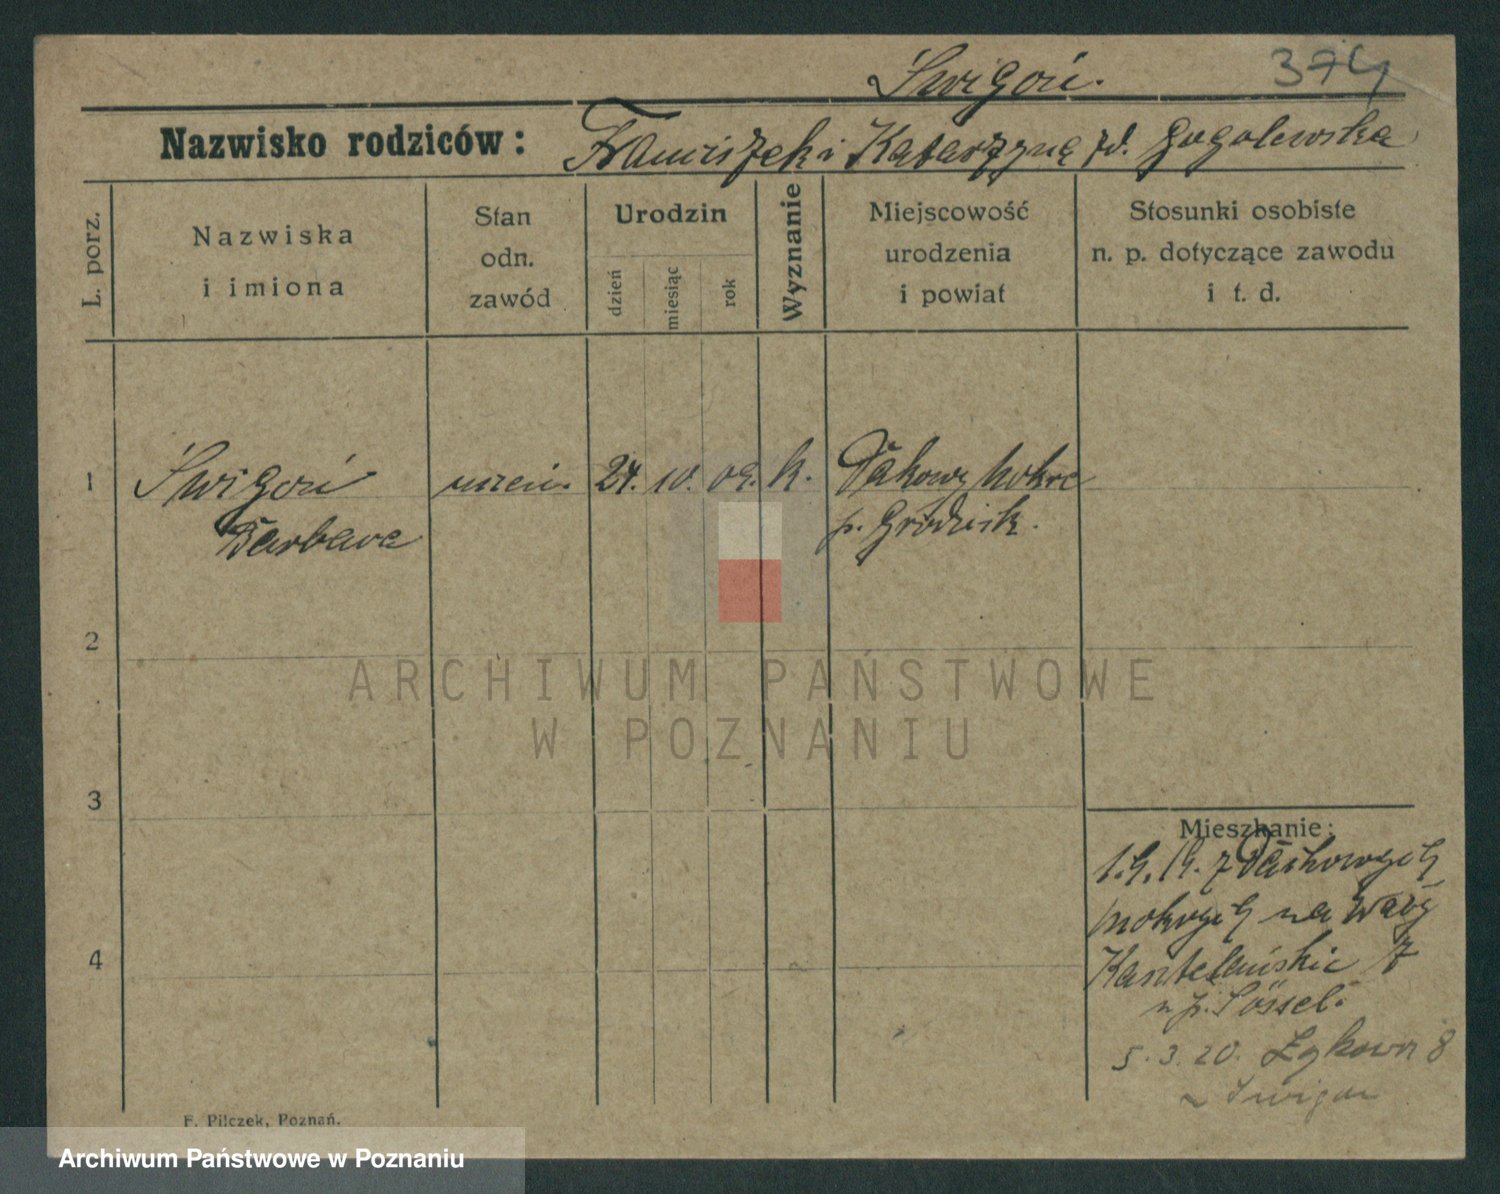 Świgoń.
374
Nazwisko rodziców: Franciszek i Katarzyna zd. Gogolewska
L. porz.
Nazwiska
i imiona
Stan
odn.
zawód
Urodzin
dzień
miesiąc
rok
Wyznanie
Miejscowość
urodzenia
i powiat
Stosunki osobiste
n. p. dotyczące zawodu
i t. d.
1 Świgoń uczeń. 24. 10. 09. k. Ptakowy Mokre
Barbara p. Grodzisk.
2
3
4
Mieszkanie:
1.9.19. z
na Wały
7
n p.
5.3.20. Łąkowa 8
Swigon
F. Pilczek, Poznań.
ARCHIWUM PAŃSTWOWE
W POZNANIU
Archiwum Państwowe w Poznaniu